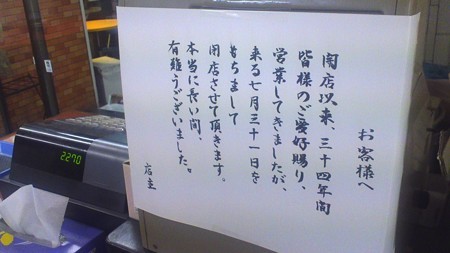 お客様へ
開店以来、三十四年間
皆様のご愛好賜り、
営業してきましたが、
来る七月三十一日を
もちまして
閉店させて頂きます。
本当に長い間、
有難うございました。
店主
2270